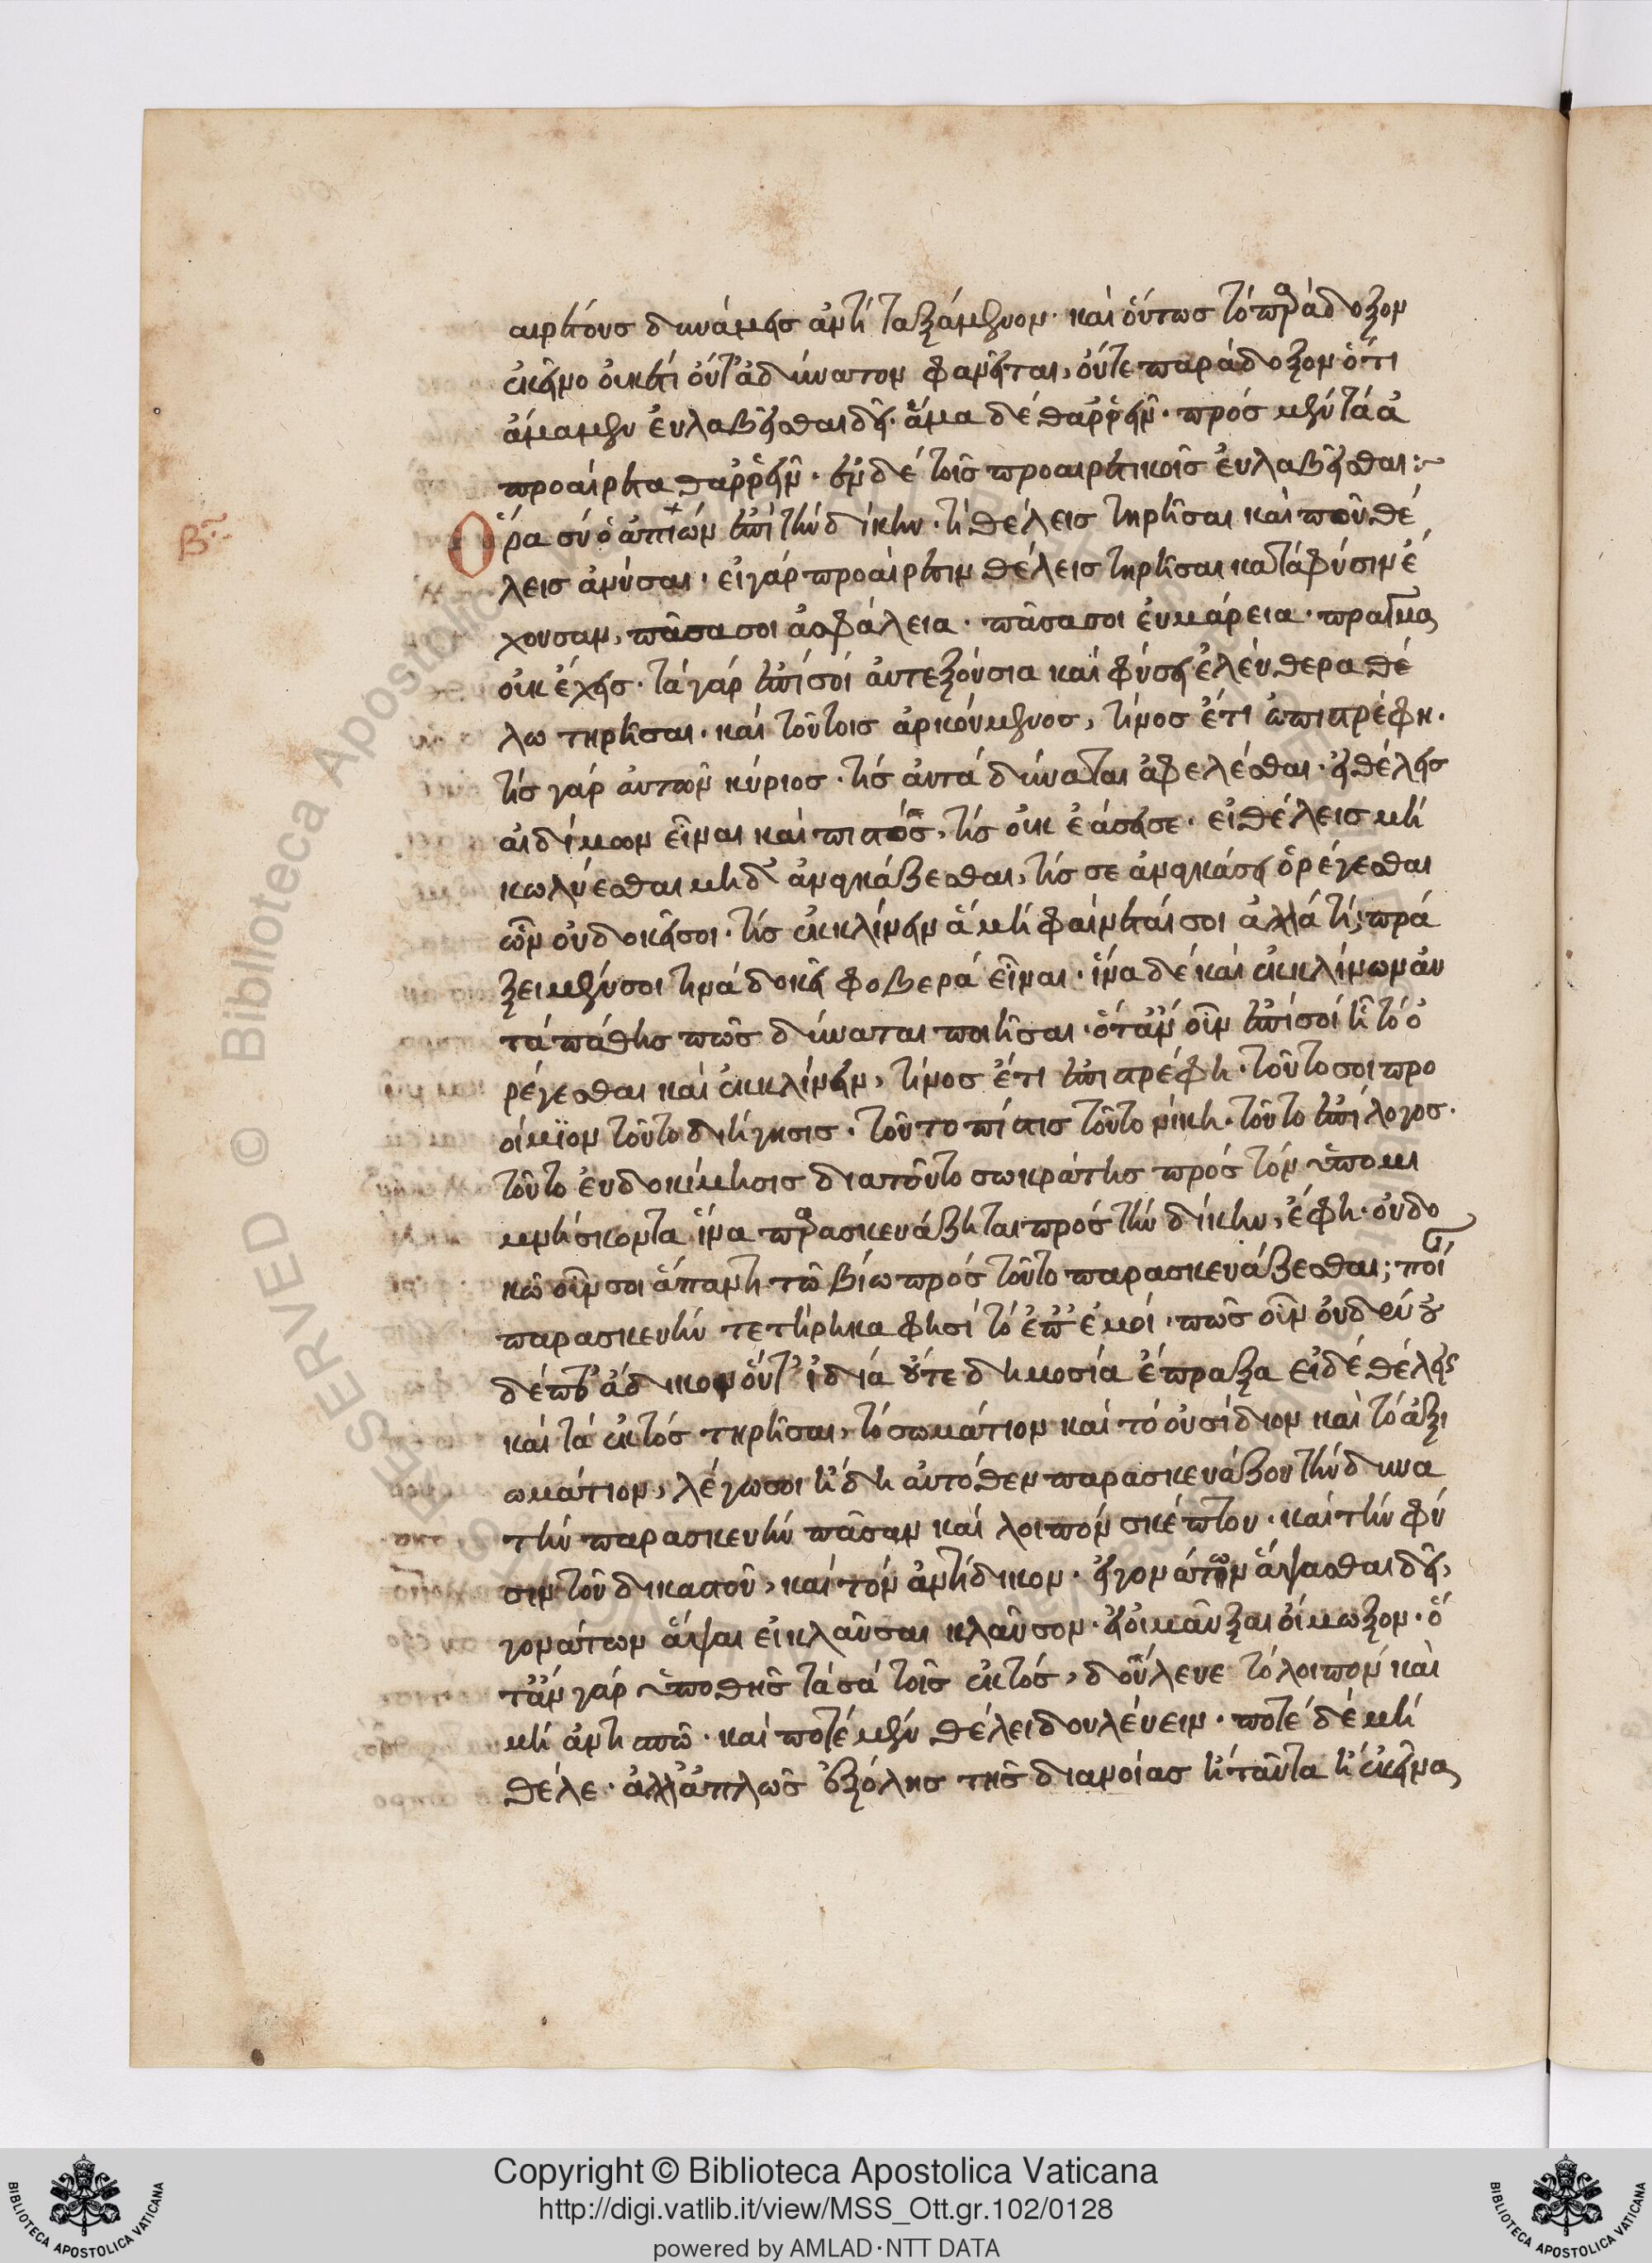 αιρέτους δυνάμεις ἀντιταξάμενον· καὶ οὕτως τὸ παράδοξον
ἐκεῖνο οὐκέτι οὔτ' ἀδύνατον φανεῖται, οὔτε παράδοξον ὅτι
ἅμα μὲν εὐλαβεῖσθαι δεῖ· ἅμα δὲ θαῤῥεῖν· πρὸς μὲν τὰ ἀ
προαίρετα θαῤῥεῖν· ἐν δὲ τοῖς προαιρετικοῖς εὐλαβεῖσθαι:~
β~
Ὅρα σὺ ὁ ἀπιὼν ἐπὶ τὴν δίκην· τί θέλεις τηρῆσαι καὶ ποῦ θέ
λεις ἀνύσαι· εἰ γὰρ προαίρεσιν θέλεις τηρῆσαι κατὰ φύσιν ἔ
χουσαν, πᾶσα σοι ἀσφάλεια· πᾶσα σοι εὐμάρεια· πράγμα
οὐκ ἔχεις· τὰ γὰρ ἐπὶ σοὶ αὐτεξούσια καὶ φύσει ἐλεύθερα θέ
λω τηρῆσαι· καὶ τούτοις ἀρκούμενος, τίνος ἔτι ἐπιστρέφη·
τίς γὰρ αὐτῶν κύριος· τίς αὐτὰ δύναται ἀφελέσθαι· εἰ θέλεις
αἰδήμων εἶναι καὶ πιστός, τίς οὐκ ἐάσει σε· εἰ θέλεις μὴ
κωλύεσθαι μηδ' ἀναγκάζεσθαι, τίς σε ἀναγκάσει ὀρέγεσθαι
ὧν οὐ δοκεῖ σοι· τίς ἐκκλίνειν ἃ μὴ φαίνεταί σοι ἀλλὰ τί; πρά
ξει μέν σοι τινὰ δοκεῖ φοβερὰ εἶναι· ἵνα δὲ καὶ ἐκκλίνων αὐ
τὰ πάθης πῶς δύναται ποιῆσαι· ὅταν οὖν ἐπὶ σοὶ ἦ τὸ ὀ
ρέγεσθαι καὶ ἐκκλίνειν, τίνος ἔτι ἐπιστρέφη· τοῦτο σοι προ
οίμϊον τοῦτο διήγησις· τοῦτο πίστις τοῦτο νίκη· τοῦτο ἐπίλογος·
τοῦτο εὐδοκίμησις διατοῦτο σωκράτης πρὸς τὸν ὑπομι
μνήσκοντα ἵνα παρασκευάζηται πρὸς τὴν δίκην, ἔφη· οὐ δο
κῶ οὖν σοι ἅπαντι τῶ βίω πρὸς τοῦτο παρασκευάζεσθαι; ποί
παρασκευὴν τετήρηκα φησὶ τὸ ἐπ' ἐμοί· πῶς οὖν οὐδὲν οὐ
δέποτ' ἄδικον οὔτ' ἰδία οὔτε δημοσία ἔπραξα εἰ δὲ θέλεις
καὶ τὰ ἐκτὸς τηρῆσαι, τὸ σωμάτιον καὶ τὸ οὐσίδιον καὶ τὸ ἀξι
ωμάτιον, λέγω σοι ἤδη αὐτόθεν παρασκευάζου τὴν δυνα
τὴν παρασκευὴν πᾶσαν καὶ λοιπὸν σκέπτου· καὶ τὴν φύ
σιν τοῦ δικαστοῦ, καὶ τὸν ἀντίδικον· εἰ γονάτων ἅψασθαι δεῖ,
γονάτων ἅψαι εἰ κλαῦσαι κλαῦσον· εἰ οἰμῶξαι οἴμωξον· ὅ
ταν γὰρ ὑποθῆς τὰ σὰ τοῖς ἐκτός, δούλευε τὸ λοιπὸν καὶ
μὴ ἀντισπῶ· καὶ ποτὲ μὲν θέλει δουλεύειν· ποτὲ δὲ μὴ
θέλε· ἀλλ' ἁπλῶς ἐξ ὅλης τῆς διανοίας ἢ ταῦτα ἢ ἐκεῖνα
Copyright © Biblioteca Apostolica Vaticana
http://digi.vatlib.it/view/MSS_Ott.gr.102/0128
powered by AMLAD·NTT DATA